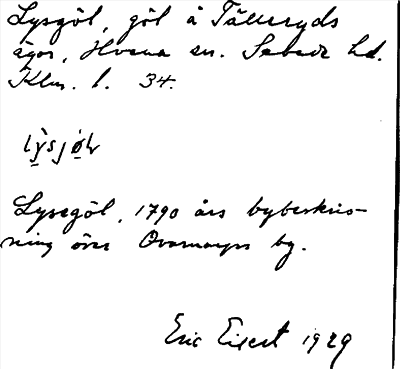 Lysgöl, göl å Tälleryds
ägor, Hvena sn. Sevede hd.
Klm. l. 34.
lỳsjø̀l
Lysegöl, 1790 års bybeskriv-
ning över Qvarnarps by.
Eric Eisert 1929